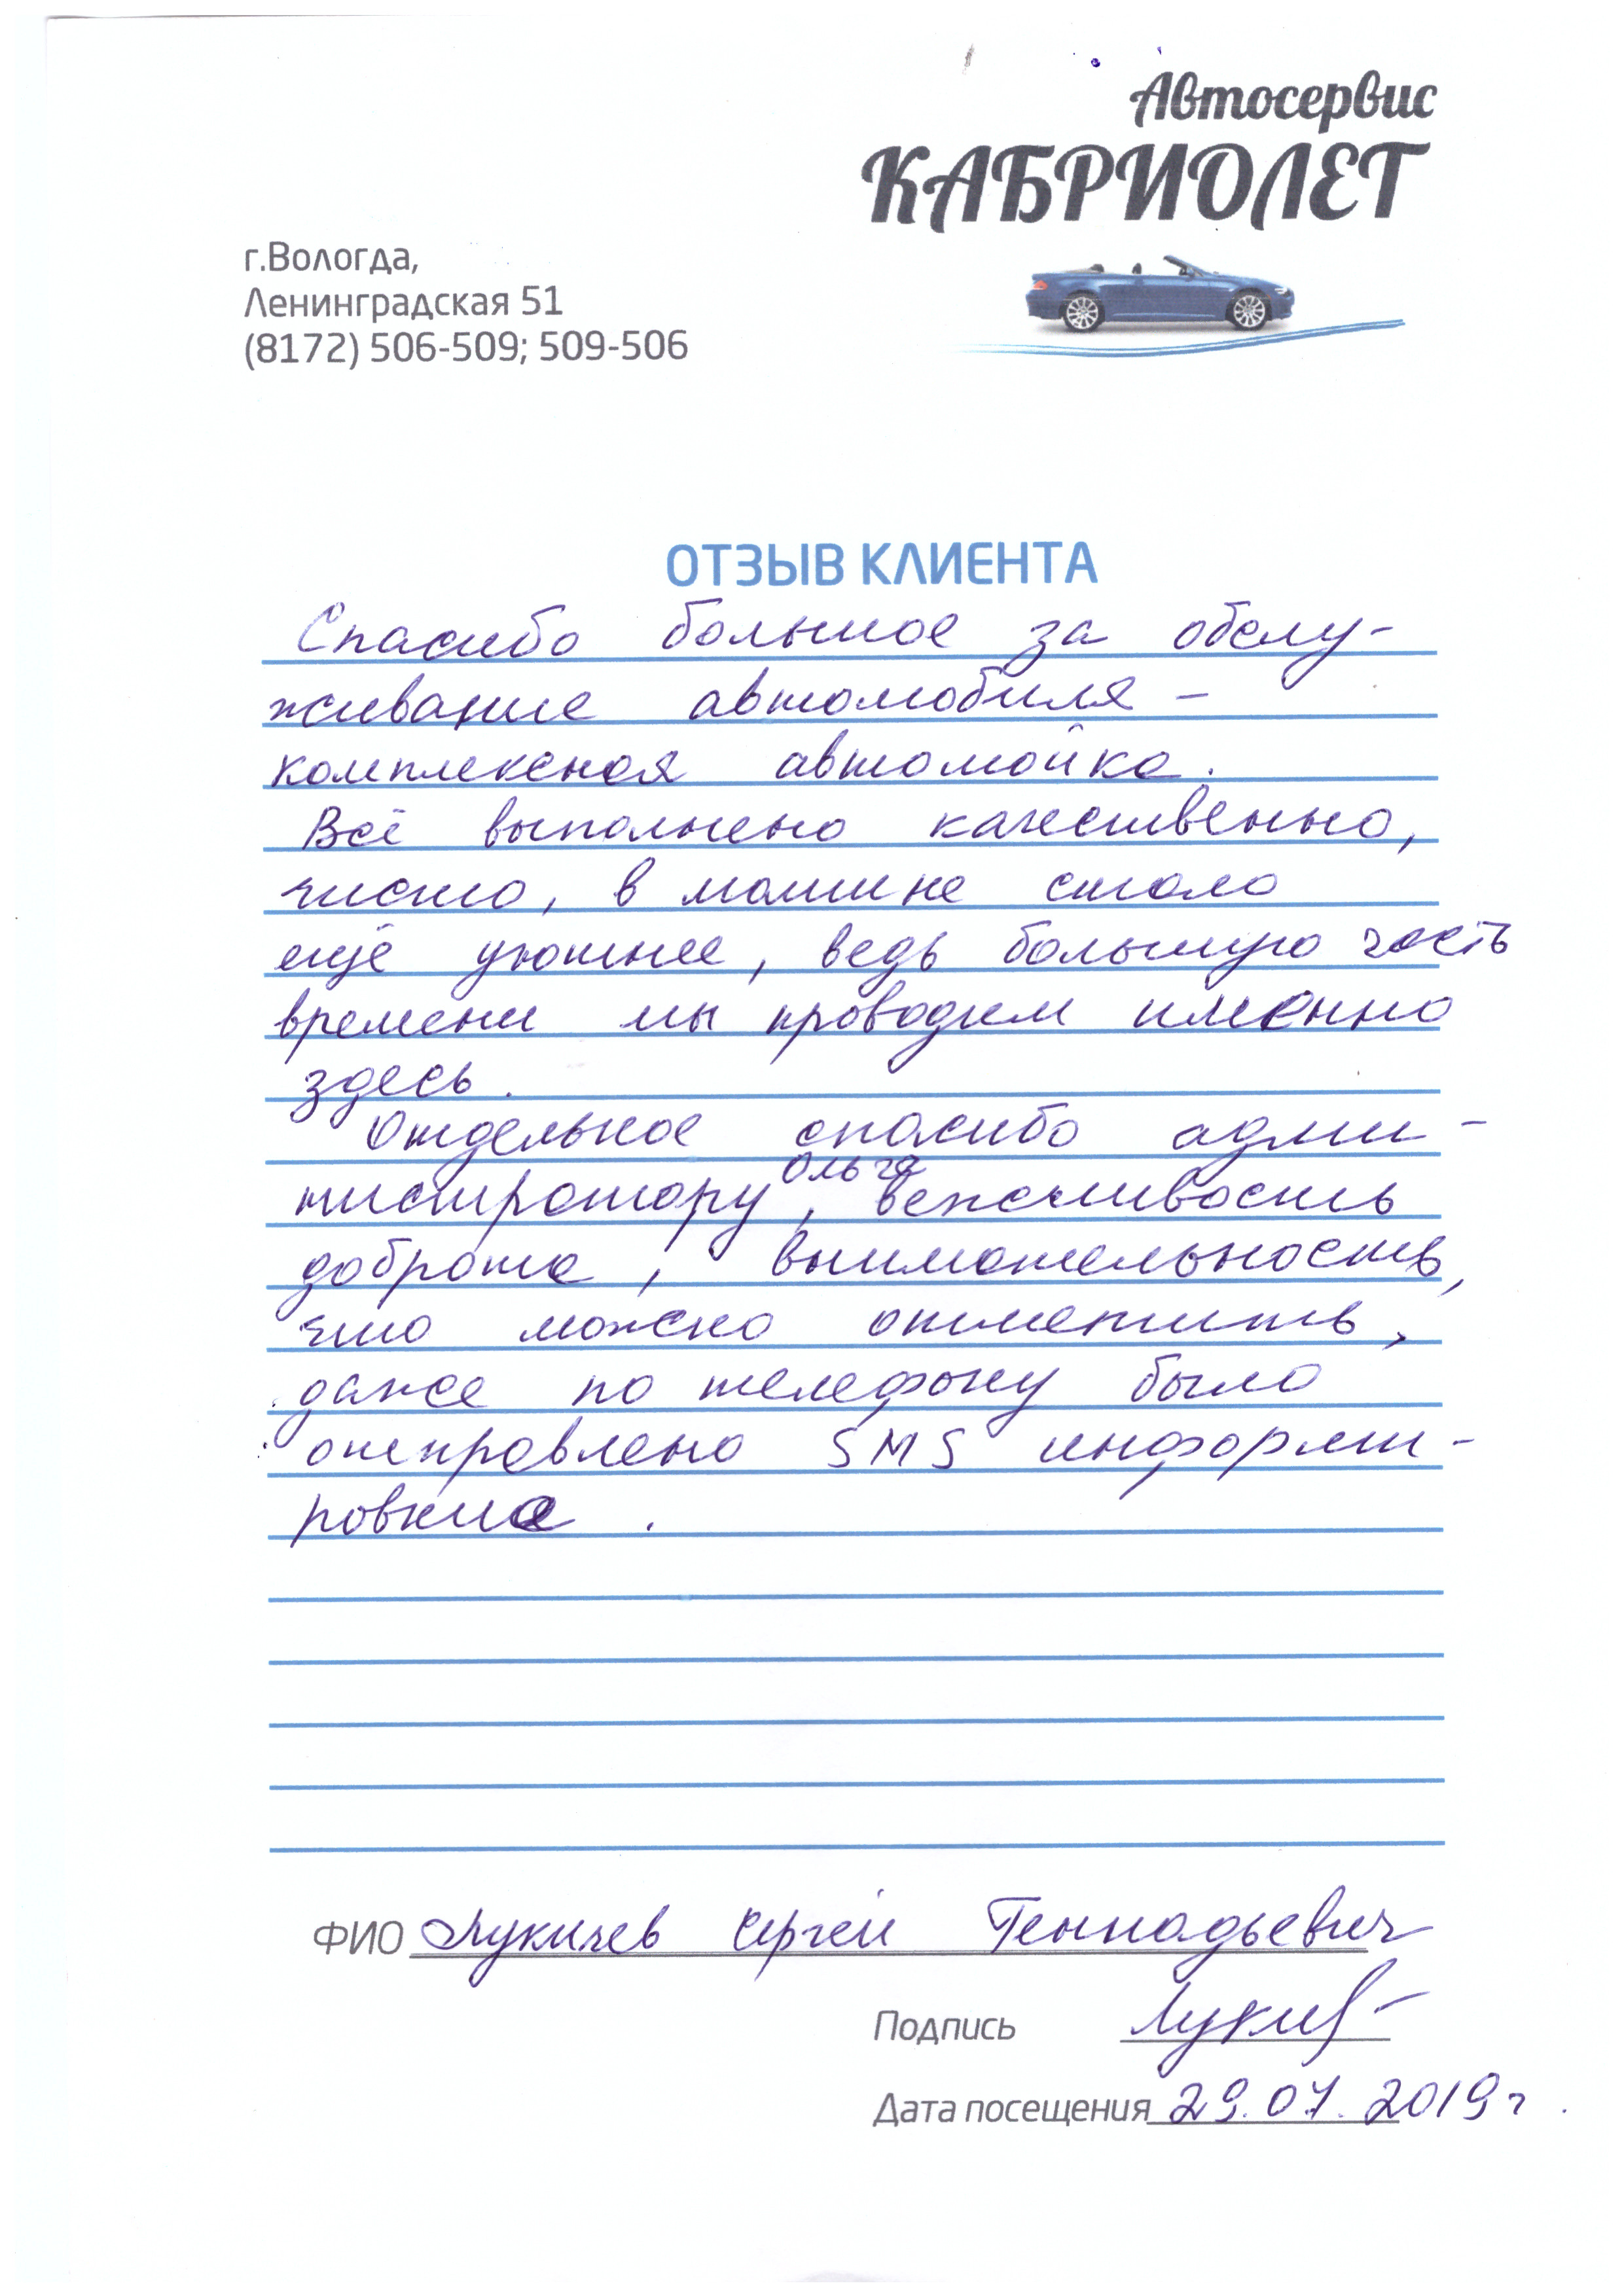 Автосервис
КАБРИОЛЕТ
г.Вологда,
Ленинградская 51
(8172) 506-509; 509-506
ОТЗЫВ КЛИЕНТА
Спасибо большое за обслу-
живание автомобиля -
комплексная автомойка.
Всё выполнено качественно,
чисто, в машине стало
ещё уютнее, ведь большую часть
времени мы проводим именно
здесь.
Отдельное спасибо адми-
нистратору Ольга, вежливость
доброта, внимательность,
что можно отметить,
даже по телефону было
отправлено SMS информи-
ровние.
ФИО Лукичев Сергей Геннадьевич
Подпись
Дата посещения 29.07.2019г.